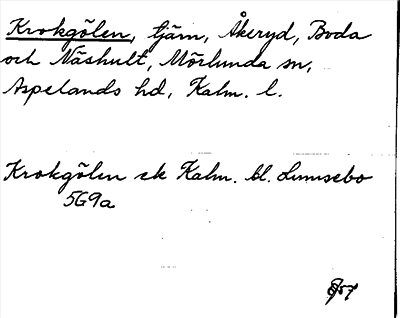 Krokgölen, tjärn, Åkeryd, Boda
och Näshult, Mörlunda sn,
Aspelands hd, Kalm. l.
Krokgölen ek Kalm. bl. Lunsebo
5G9a